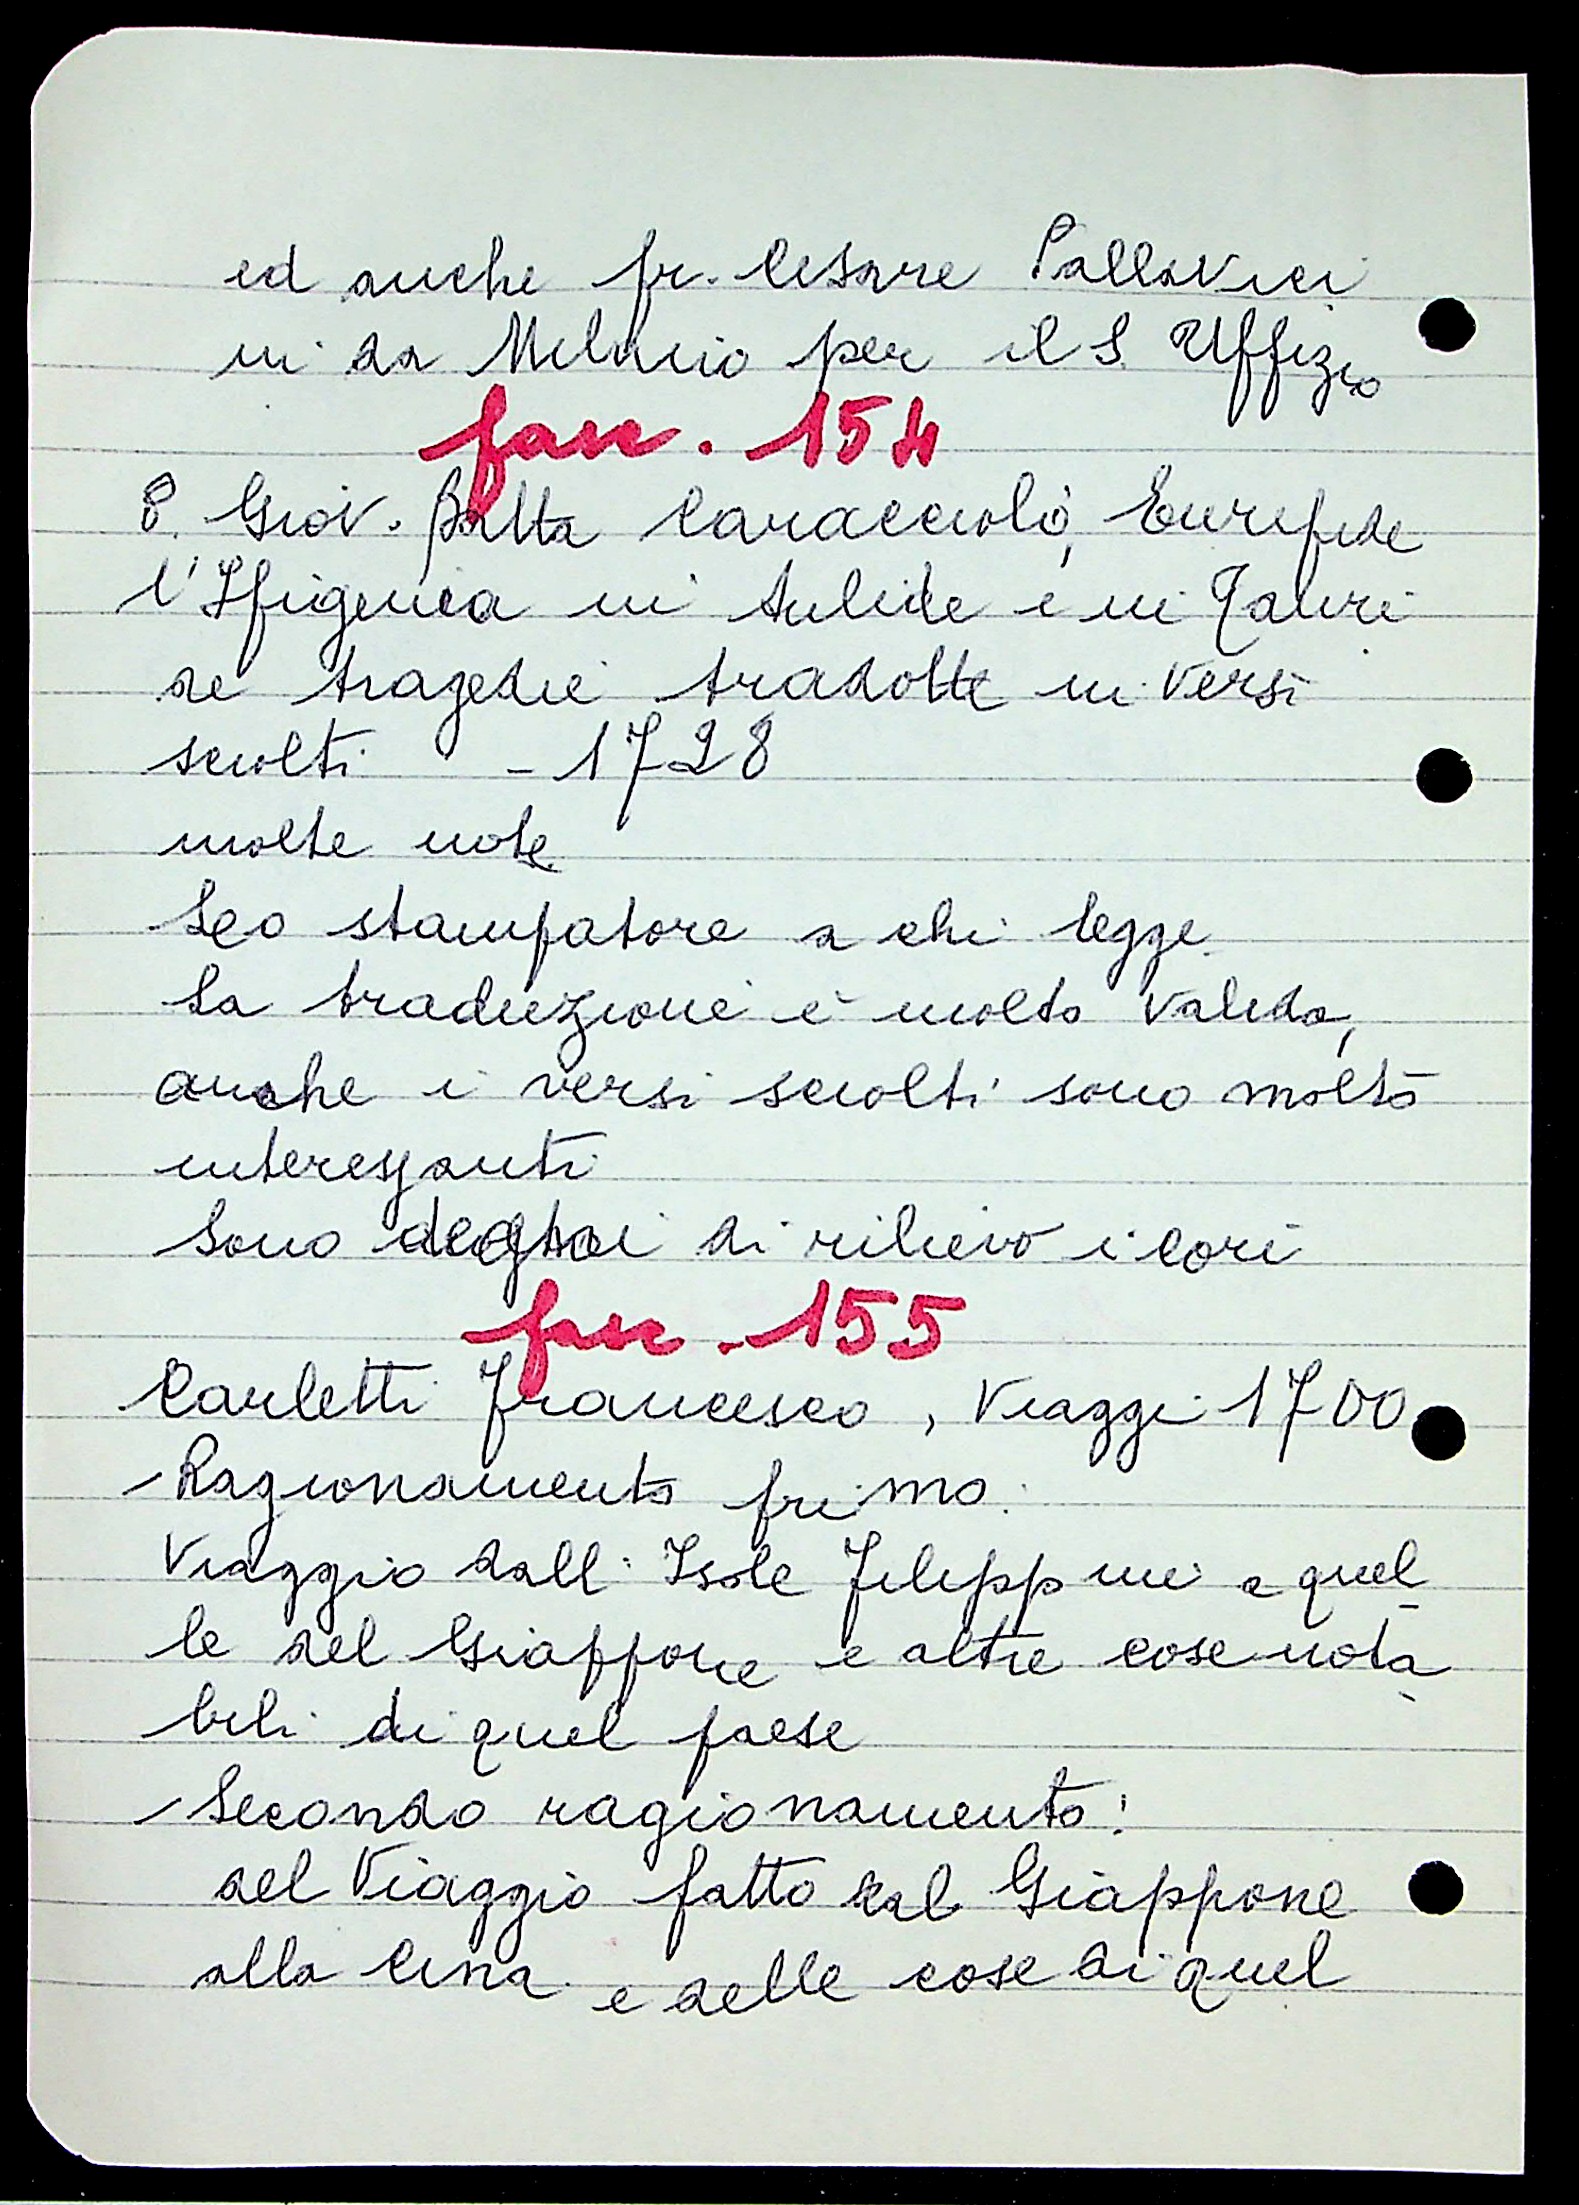 ed anche fr. Cesare Pallavici
ni da Milano per il S. Uffizio
fasc. 154
P. Giov. Batta Caracciolo, Euripide
l'Ifigenia in Aulide e in Tauri
de tragedie tradotte in versi
sciolti - 1728
molte note
Lo stampatore a chi legge
La traduzione è molto valida,
anche i versi sciolti sono molto
interessanti
Sono degni di rilievo i cori
fasc. 155
Carletti Francesco, Viaggi 1700
- Ragionamento primo:
Viaggio dall'Isole Filippine a quel
le del Giappone e altre cose nota
bili di quel paese
- Secondo ragionamento:
del Viaggio fatto dal Giappone
alla Cina e delle cose di quel